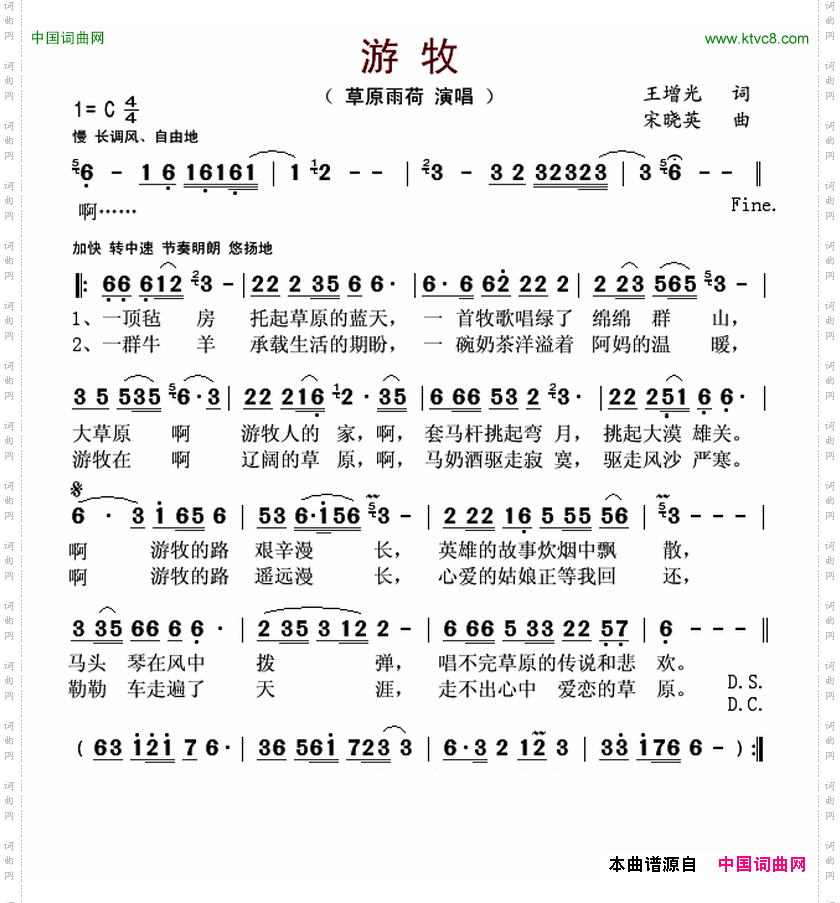 中国词曲网
www.ktvc8.com
游 牧
（ 草原雨荷 演唱 ）
王增光 词
宋晓英 曲
1= C 4/4
慢 长调风、自由地
5 6 - 1 6 16161 | 1 1 2 - - | 2 3 - 3 2 32323 | 3 5 6 - - ‖
啊…… Fine.
加快 转中速 节奏明朗 悠扬地
‖: 66 612 2 3 - | 22 2 35 6 6· | 6· 6 62 22 2 | 2 23 565 5 3 - |
1、一顶毡 房 托起草原的蓝天， 一 首牧歌唱绿了 绵绵 群 山，
2、一群牛 羊 承载生活的期盼， 一 碗奶茶洋溢着 阿妈的温 暖，
3 5 535 5 6·3 | 22 216 1 2· 35 | 6 66 53 2 2 3· | 22 251 6 6· |
大草原 啊 游牧人的 家，啊， 套马杆挑起弯 月， 挑起大漠 雄关。
游牧在 啊 辽阔的草 原，啊， 马奶酒驱走寂 寞， 驱走风沙 严寒。
6 · 3 1 65 6 | 53 6·156 5 3 - | 2 22 16 5 55 56 | 5 3 - - - |
啊 游牧的路 艰辛漫 长， 英雄的故事炊烟中飘 散，
啊 游牧的路 遥远漫 长， 心爱的姑娘正等我回 还，
3 35 66 6 6 · | 2 35 3 12 2 - | 6 66 5 33 22 57 | 6 - - - ‖
马头 琴在风中 拨 弹， 唱不完草原的传说和悲 欢。
勒勒 车走遍了 天 涯， 走不出心中 爱恋的草 原。
D.S.
D.C.
( 63 121 7 6· | 36 561 723 3 | 6·3 2 12 3 | 33 176 6 - ) :‖
本曲谱源自 中国词曲网